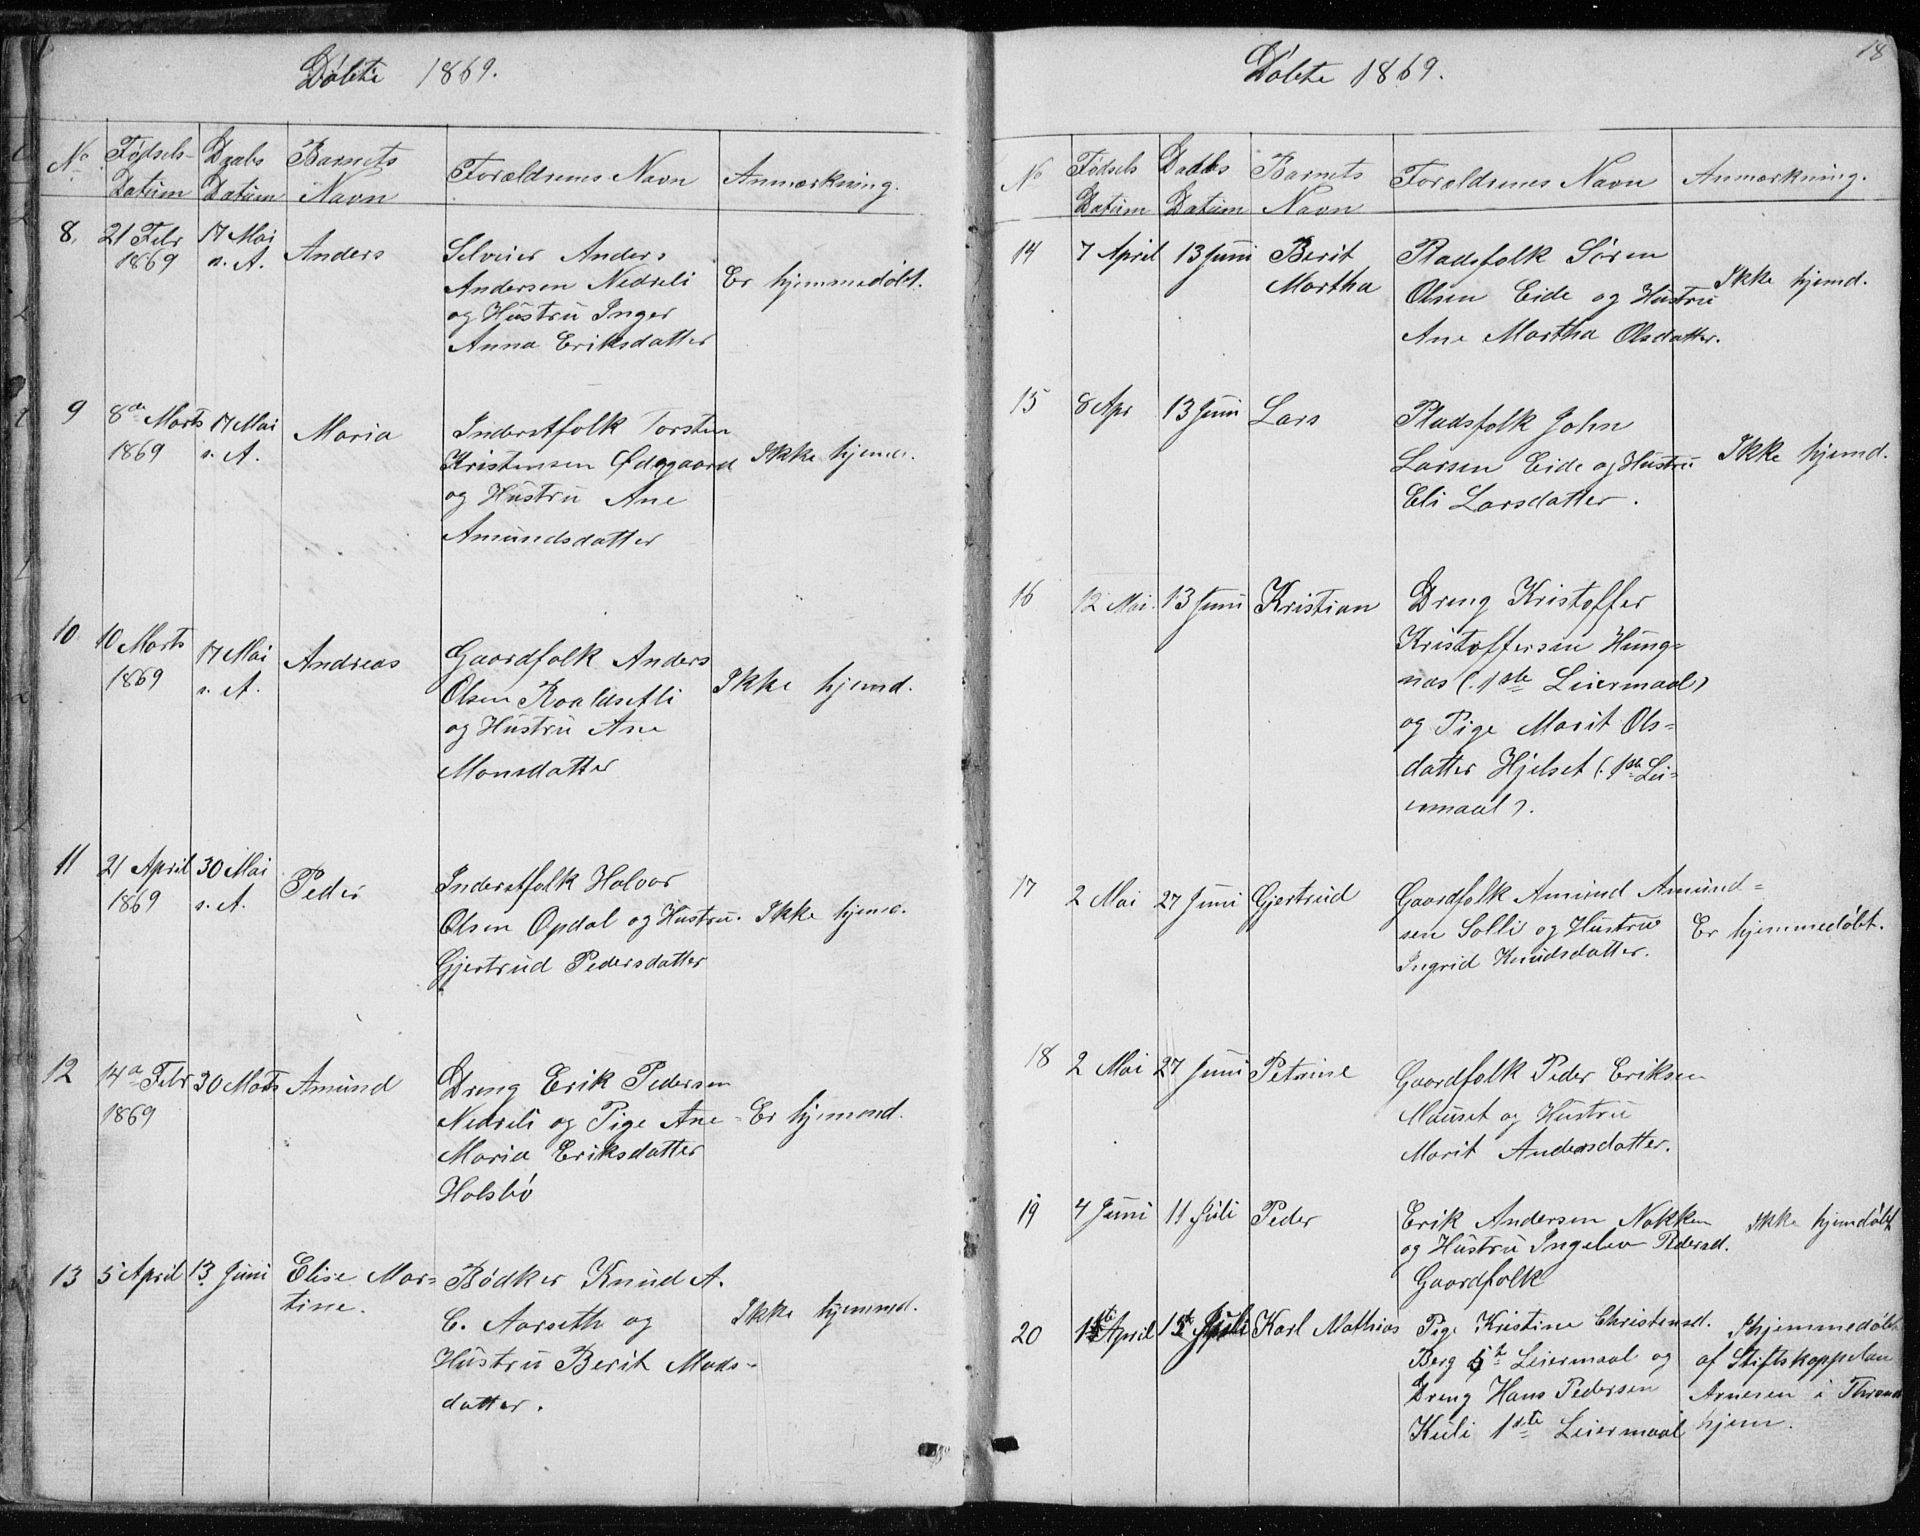 Døbte 1869.
No
Fødsels-
Datum
Daabs
Datum
Barnets
Navn
Forældrenes Navn
Anmærkning.
8.
21 Febr
1869
17 Mai
s. A.
Anders
Selveier Anders
Andersen Nedreli
og Hustru Inger
Anna Eriksdatter
Er hjemmedøbt.
9
8de Marts
1869
17 Mai
s. A.
Maria
Inderstfolk Torsten
Kristensen Ødegaard
og Hustru Ane
Amundsdatter
Ikke hjemd.
10
10 Marts
1869
17 Mai
s. A.
Andreas
Gaardfolk Anders
Olsen Roaldsetli
og Hustru Ane
Monsdatter
Ikke hjemd.
11
21 April
1869
30 Mai
s. A.
Peder
Inderstfolk Halvor
Olsen Opdal og Hustru
Gjertrud Pedersdatter
Ikke hjemd.
12
14de Febr
1869
30 Marts
Amund
Dreng Erik Pedersen
Nedreli og Pige Ane
Maria Eriksdatter
Holsbø
Er hjemmd.
13
5 April
13 Juni
Elise Mar-
tine.
Bødker Knud A.
C. Aarseth og
Hustru Berit Mads-
datter.
Ikke hjemmd.
18
Døbte 1869.
No
Fødsels
Datum
Daabs
Datum
Barnets
Navn
Forældrenes Navn
Anmærkning.
14
7 April
13 Juni
Berit
Martha
Pladsfolk Søren
Olsen Eide og Hustru
Ane Martha Olsdatter.
Ikke hjemd.
15
8 Apr
13 Juni
Lars
Pladsfolk John
Larsen Eide og Hustru
Eli Larsdatter.
Ikke hjemd.
16
12 Mai.
13 Juni
Kristian
Dreng Kristoffer
Kristoffersen Hung-
nes (: 1ste Leiermaal)
og Pige Marit Ols-
datter Hjelset (: 1ste Lei-
ermaal).
17
2 Mai
27 Juni
Gjertrud
Gaardfolk Amund Amund-
sen Solli og Hustru
Ingrid Knudsdatter.
Er hjemmedøbt.
18
2 Mai
27 Juni
Petrine
Gaardfolk Peder Eriksen
Mauset og Hustru
Marit Andersdatter.
19
4 Juni
11 Juli
Peder
Erik Andersen Nakken
og Hustru Ingelev Pedersd.
Gaardfolk
Ikke hjemdøbt
20
April
Juli
Karl Mathias
Pige Kristine Christensd.
Berg Leiermaal og
Dreng Hans Pedersen
Kuli 1ste Leiermaal
hjemmedøbt
af Stiftskappelan
Arnesen i Thrond
hjem.